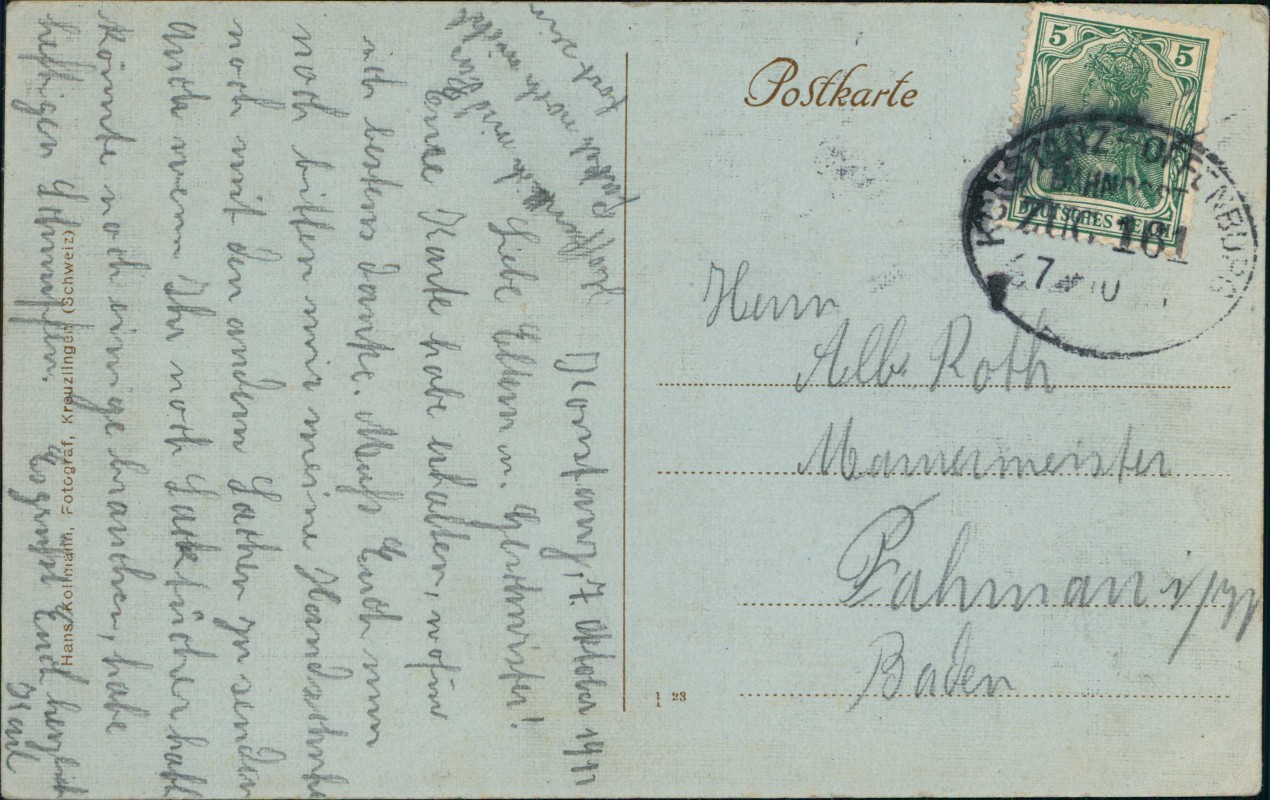 Postkarte
5 5
DEUTSCHES REICH
KONSTANZ - OFFENBURG
BAHNPOST
ZUG 161
7 10
Herrn
Alb. Roth
Maurermeister
Fahrnau i/W
Baden
1 23
1
Hans Kollmann, Fotograf, Kreuzlingen (Schweiz)
Konstanz, 7. Oktober 1911
Liebe Eltern u. Geschwister!
Eure Karte habe erhalten, wofür
ich bestens danke. Muß Euch nun
noch bitten mir meine Handschuhe
noch mit den andern Sachen zu senden
Auch wenn Ihr noch Sacktücher habt
könnte noch einige brauchen, habe
heftigen Schnupfen.
Es grüßt Euch herzlich
Karl